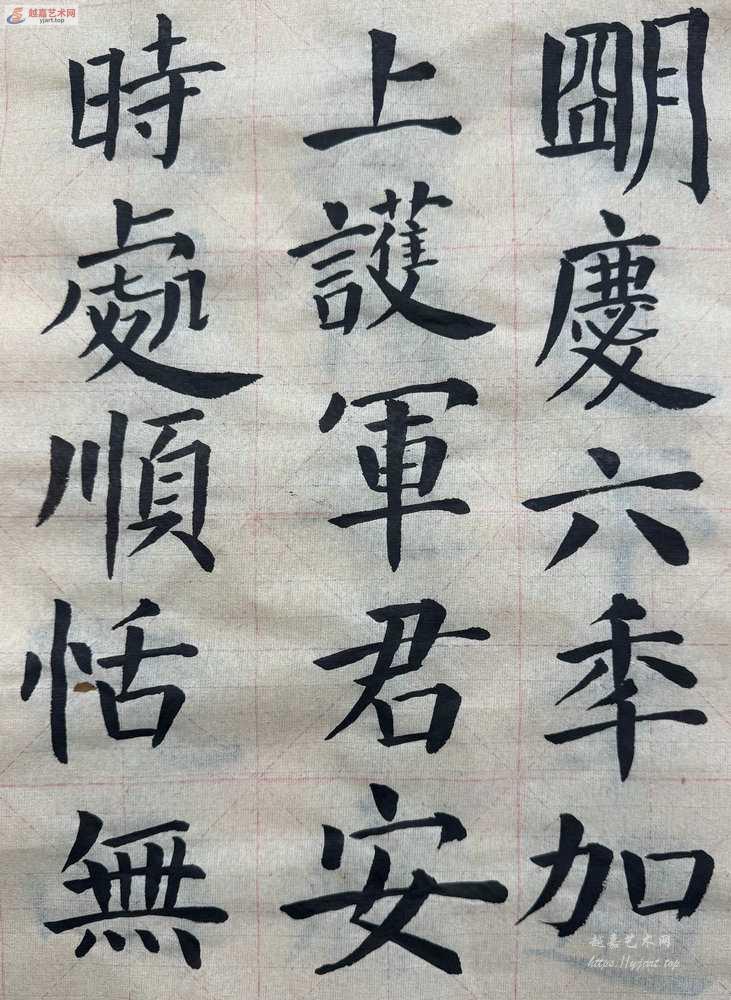 越嘉艺术网
yjart.top
朙慶六秊加
上護軍君安
時處順恬無
越嘉艺术网
https://yjart.top